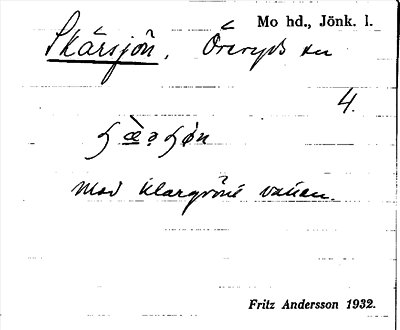 Mo hd., Jönk. l.
Skärsjön, Öreryds sn
4.
med klargrönt vatten.
Fritz Andersson 1932.